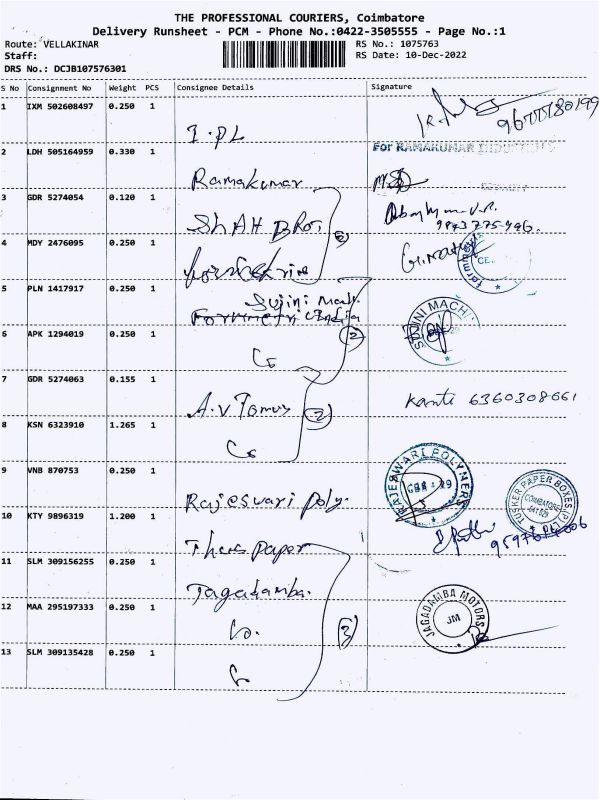 THE PROFESSIONAL COURIERS, Coimbatore
Delivery Runsheet - PCM - Phone No.:0422-3505555 - Page No.:1
Route: VELLAKINAR RS No.: 1075763
Staff: RS Date: 10-Dec-2022
DRS No.: DCJB107576301
S No Consignment No Weight PCS Consignee Details Signature
1 IXM 502608497 0.250 1
I.PL
2 LDH 505164959 0.330 1 For RAMAKUMAR
Ramakumar
3 GDR 5274054 0.120 1
SHAH Bros.
4 MDY 2476095 0.250 1
5 PLN 1417917 0.250 1
Sujini Mach.
6 APK 1294019 0.250 1 SUJINI MACHI
2
7 GDR 5274063 0.155 1
A.V Tomus Kanti 6360308661
8 KSN 6323910 1.265 1 2
9 VNB 870753 0.250 1 RAJESWARI POLYMERS
Rajeswari Poly.
10 KTY 9896319 1.200 1 TUSKER PAPER BOXES (P) LTD
COIMBATORE
641 029
paper
11 SLM 309156255 0.250 1
Jagadamba.
12 MAA 295197333 0.250 1 JAGADAMBA MOTORS
JM
3
13 SLM 309135428 0.250 1